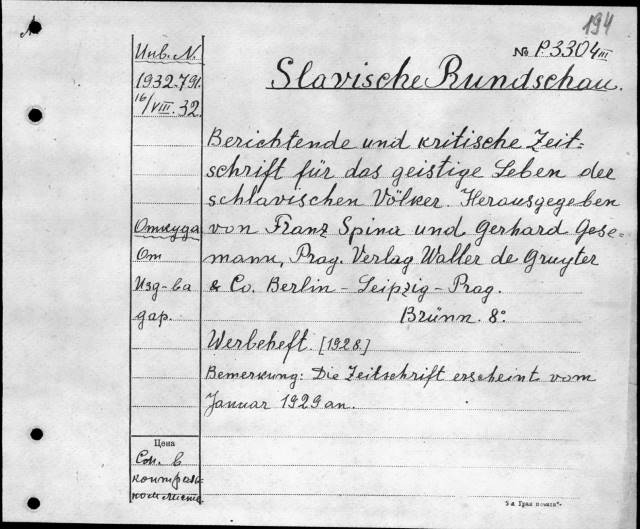 194
№ P.3304 III
Slavische Rundschau.
Berichtende und kritische Zeit=
schrift für das geistige Leben der
schlavischen Völker. Herausgegeben
von Franz Spina und Gerhard Gese=
mann, Prag. Verlag Walter de Gruyter
& Co. Berlin – Leipzig – Prag.
Brünn. 8°
Werbeheft. [1928.]
Bemerkung: Die Zeitschrift erscheint vom
Januar 1929 an.
Инв. N.
1932.791.
16/VIII. 32.
Откуда
От
Изд-ва
дар.
Цена
См. в
контрол.
ком листе